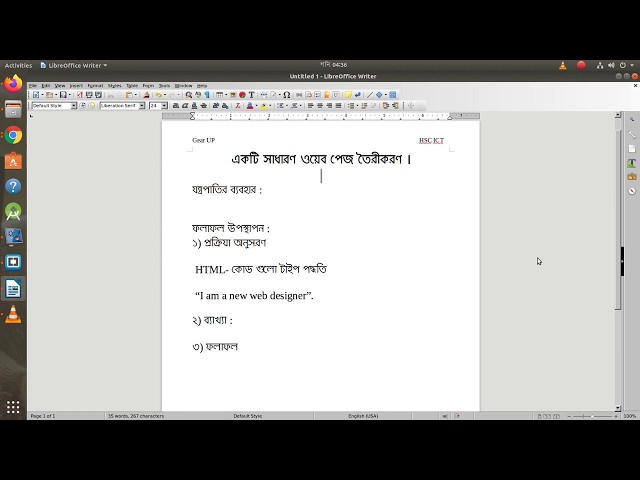 Activities LibreOffice Writer শনি 04:36
Untitled 1 - LibreOffice Writer
File Edit View Insert Format Styles Table Form Tools Window Help
Default Style Liberation Serif 24
Gear UP HSC ICT
একটি সাধারণ ওয়েব পেজ তৈরীকরণ ।
যন্ত্রপাতির ব্যবহার :
ফলাফল উপস্থাপন :
১) প্রক্রিয়া অনুসরণ
HTML- কোড গুলো টাইপ পদ্ধতি
“I am a new web designer”.
২) ব্যাখ্যা :
৩) ফলাফল
Page 1 of 1 35 words, 267 characters Default Style English (USA) 100%